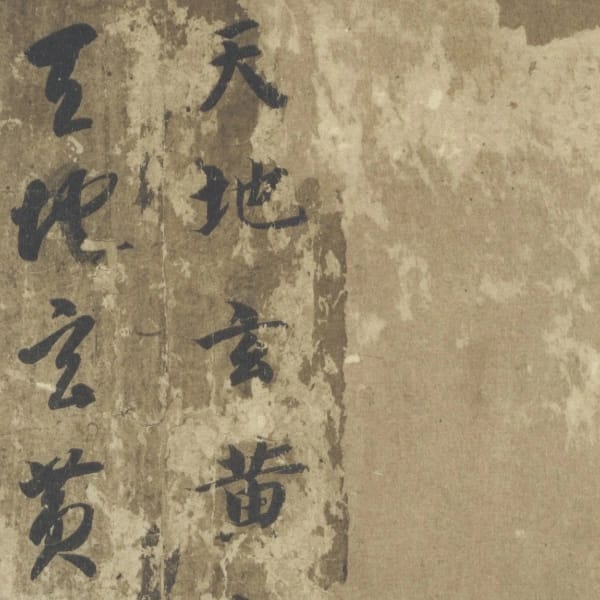 天地玄黄
天地玄黄